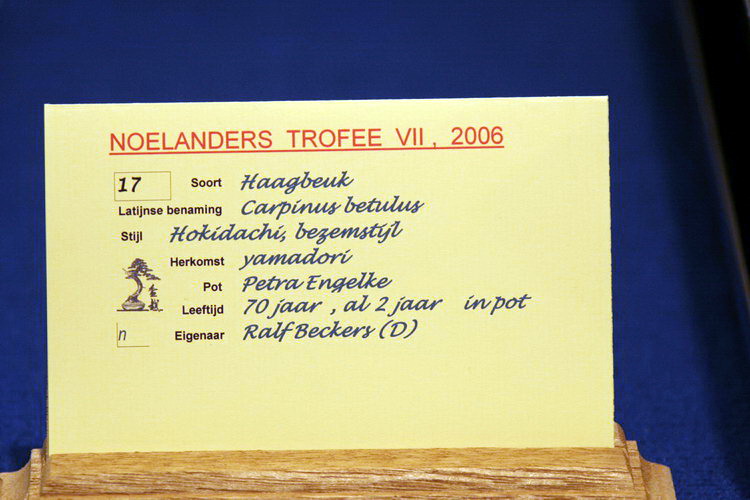 NOELANDERS TROFEE VII , 2006
17 Soort Haagbeuk
Latijnse benaming Carpinus betulus
Stijl Hokidachi, bezemstijl
Herkomst yamadori
Pot Petra Engelke
Leeftijd 70 jaar , al 2 jaar in pot
n Eigenaar Ralf Beckers (D)